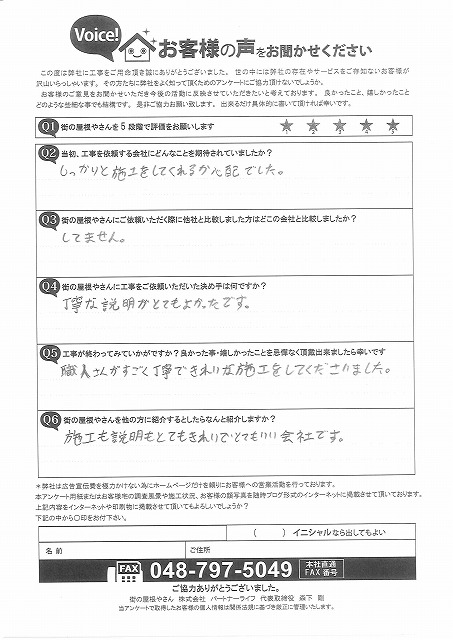 Voice!
お客様の声をお聞かせください
この度は弊社に工事をご用命頂き誠にありがとうございました。 世の中には弊社の存在やサービスをご存知ないお客様が
沢山いらっしゃいます。 その方たちに弊社をよく知って頂くためのアンケートにご協力頂けないでしょうか。
お客様のご意見をお聞かせいただき今後の活動に反映させていただきたいと考えております。 良かったこと、嬉しかったこと
どのような些細な事でも結構です。 是非ご協力お願い致します。 出来るだけ具体的に書いて頂ければ幸いです。
Q1 街の屋根やさんを5段階で評価をお願いします
1 2 3 4 5
Q2 当初、工事を依頼する会社にどんなことを期待されていましたか？
しっかりと施工をしてくれるか心配でした。
Q3 街の屋根やさんにご依頼いただく際に他社と比較しました方はどこの会社と比較しましたか？
してません。
Q4 街の屋根やさんに工事をご依頼いただいた決め手は何ですか？
丁寧な説明がとてもよかったです。
Q5 工事が終わってみていかがですか？良かった事・嬉しかったことを忌憚なく頂戴出来ましたら幸いです
職人さんがすごく丁寧できれいな施工をしてくださいました。
Q6 街の屋根やさんを他の方に紹介するとしたらなんと紹介しますか？
施工も説明もとてもきれいでとてもいい会社です。
＊弊社は広告宣伝費を極力かけない為にホームページだけを頼りにお客様への営業活動を行っております。
本アンケート用紙またはお客様宅の調査風景や施工状況、お客様の顔写真を随時ブログ形式のインターネットに掲載させて頂いております。
上記内容をインターネットや印刷物に掲載させて頂いてもよろしいでしょうか？
下記の中から〇印をお付下さい。
（ ） イニシャルなら出してもよい
名前 ご住所
FAX 048-797-5049 本社直通 FAX番号
ご協力ありがとうございました。
街の屋根やさん 株式会社 パートナーライフ 代表取締役 森下 剛
当アンケートで取得したお客様の個人情報は関係法規に基づき厳正に管理いたします。